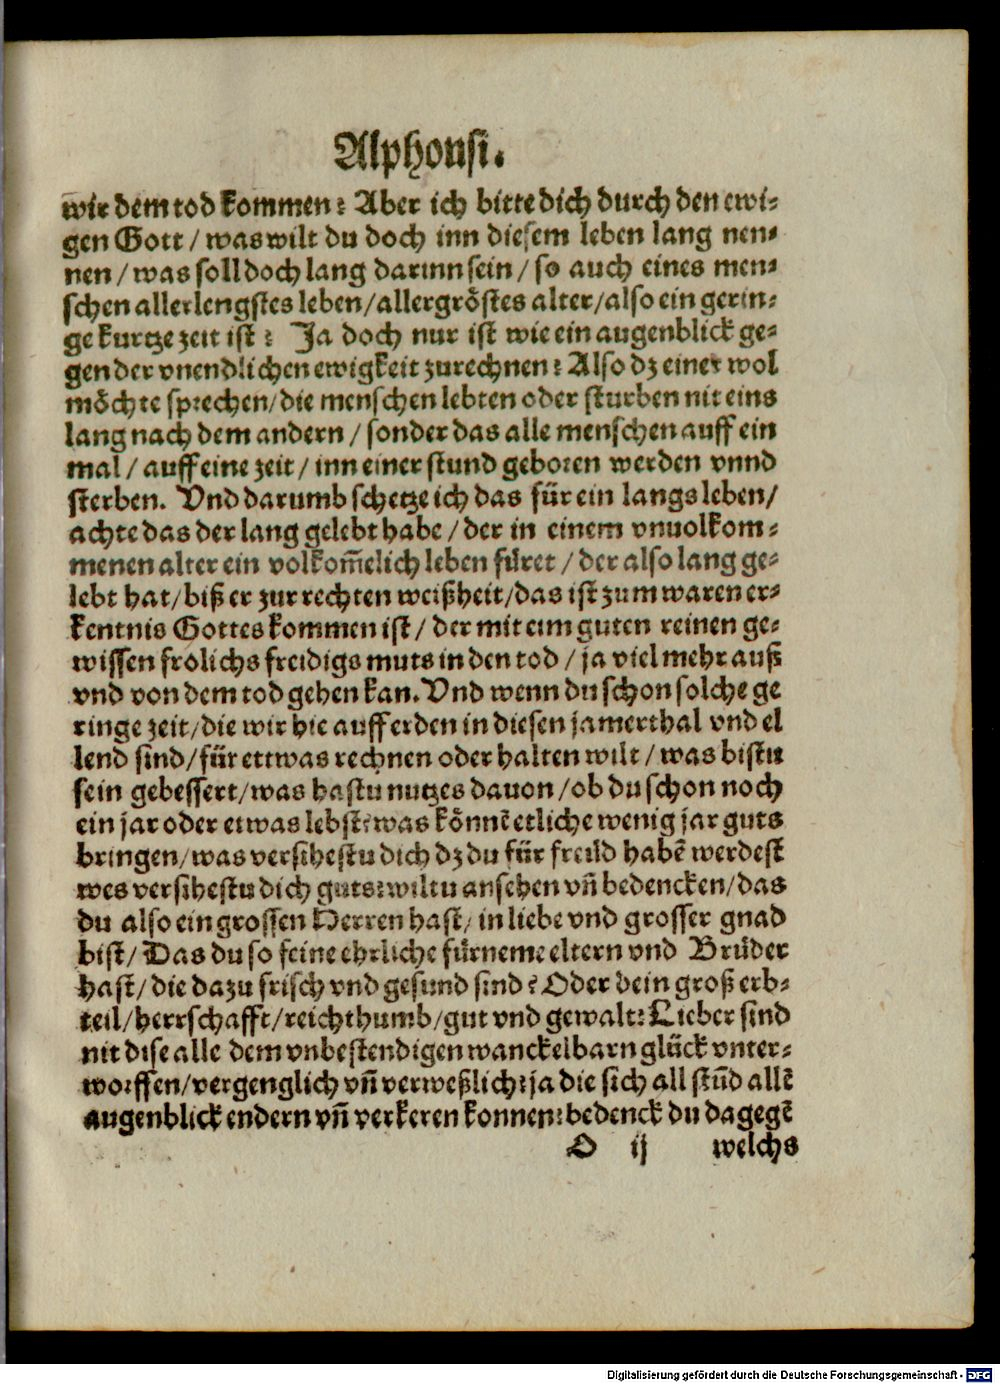 Alphonsi.
wir dem tod kommen? Aber ich bitte dich durch den ewi-
gen Gott / was wilt du doch inn diesem leben lang nen-
nen / was soll doch lang darinn sein / so auch eines men-
schen allerlengstes leben/allergröstes alter/also ein gerin-
ge kurtze zeit ist? Ja doch nur ist wie ein augenblick ge-
gen der vnendlichen ewigkeit zurechnen? Also dz einer wol
möchte sprechen/die menschen lebten oder sturben nit eins
lang nach dem andern / sonder das alle menschen auff ein
mal / auff eine zeit / inn einer stund geboren werden vnnd
sterben. Vnd darumb schetze ich das für ein langs leben/
achte das der lang gelebt habe / der in einem vnuolkom-
menen alter ein volkom̃elich leben füret / der also lang ge-
lebt hat/biß er zur rechten weißheit/das ist zum waren er-
kentnis Gottes kommen ist / der mit eim guten reinen ge-
wissen frölichs freidigs muts in den tod / ja viel mehr auß
vnd von dem tod gehen kan. Vnd wenn du schon solche ge
ringe zeit/die wir hie auff erden in diesen jamerthal vnd el
lend sind/für ettwas rechnen oder halten wilt / was bistu
sein gebessert/was hastu nutzes dauon/ob du schon noch
ein jar oder etwas lebst?was könnē etliche wenig jar guts
bringen/was versihestu dich dz du für freüd habē werdest
wes versihestu dich guts?wiltu ansehen vñ bedencken/das
du also ein grossen Herren hast/in liebe vnd grosser gnad
bist/Das du so feine ehrliche fürneme eltern vnd Brüder
hast/die dazu frisch vnd gesund sind? Oder dein groß erb-
teil/herrschafft/reichthumb/gut vnd gewalt? Lieber sind
nit dise alle dem vnbestendigen wanckelbarn glück vnter-
worffen/vergenglich vñ verweßlich?ja die sich all stūd allē
augenblick endern vñ verkeren konnen?bedenck du dagegē
O ij welchs
Digitalisierung gefördert durch die Deutsche Forschungsgemeinschaft - DFG